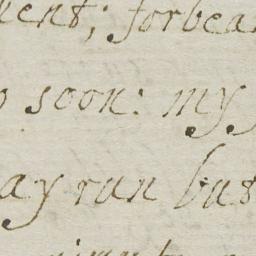 ment; forbear
o soon: my
ay run but